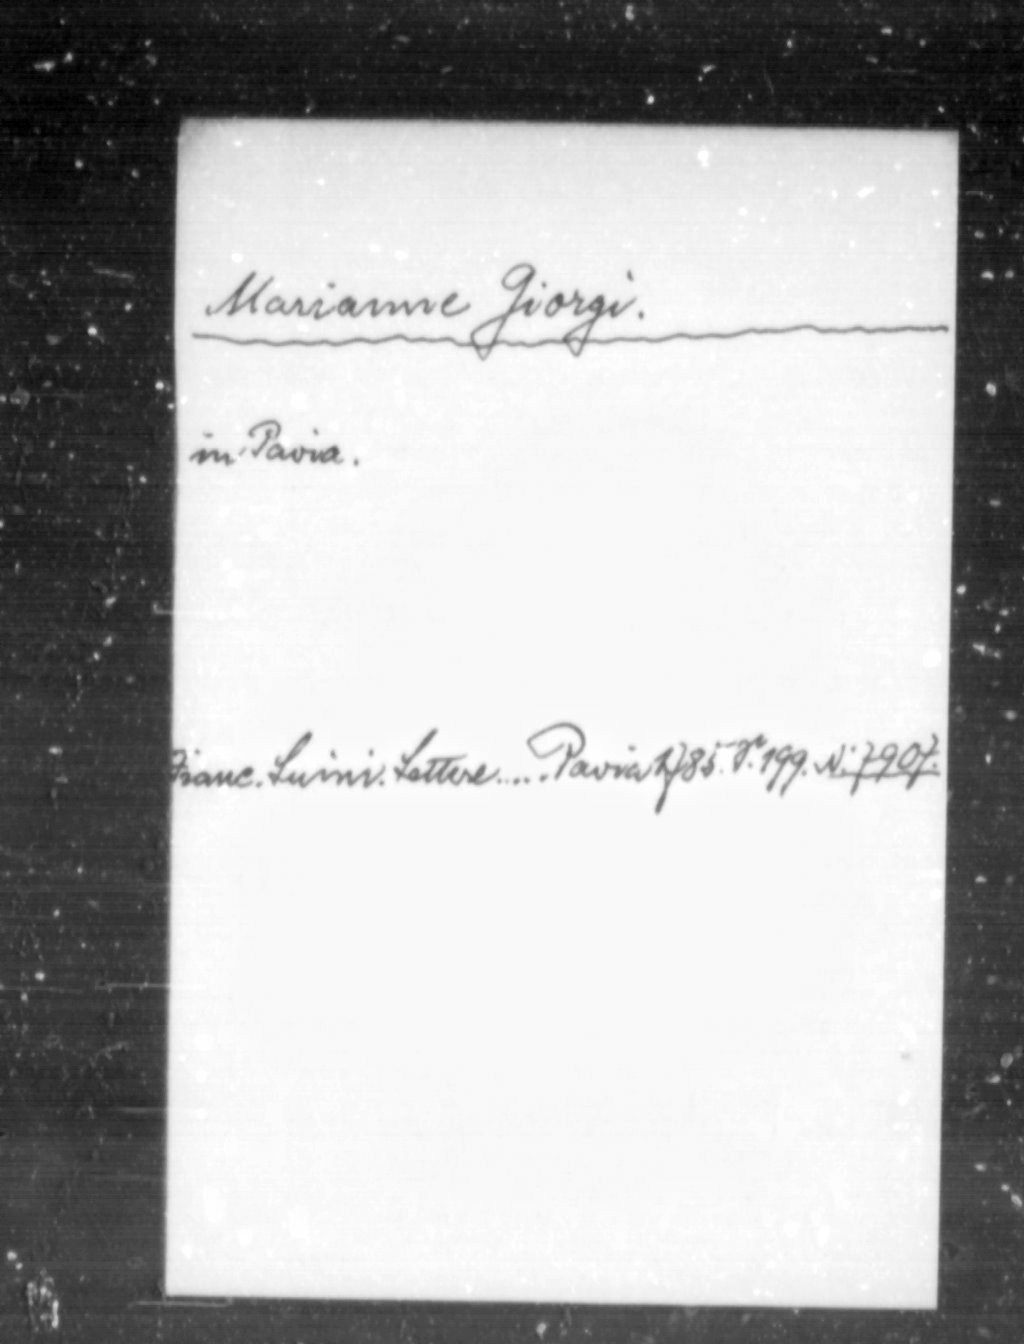 Marianne Giorgi.
in Pavia.
Franc. Luini. Lettere.... Pavia 1785. P. 199. N: 7907.